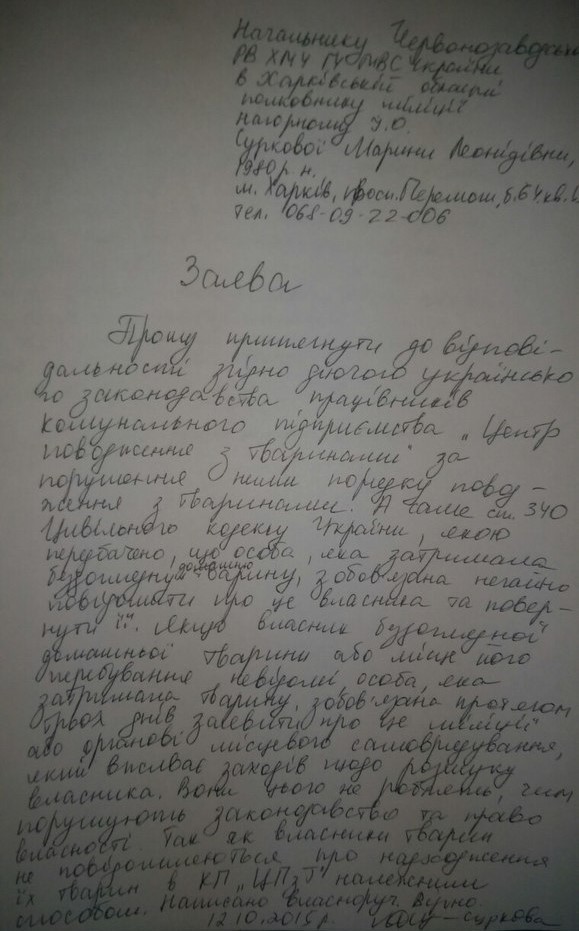 Начальнику Червонозаводськ
РВ ХМУ ГУМВС України
в Харківській області
полковнику міліції
Нагорному І.О.
Суркової Марини Леонідівни,
1980 р. н.
м. Харків, просп. Перемоги, б. 64, кв.
тел. 068-09-22-006
Заява
Прошу притягнути до відпові-
дальності згідно діючого українсько
го законодавства працівників
комунального підприємства „Центр
поводження з тваринами" за
порушення ними порядку повод-
ження з тваринами. А саме ст. 340
Цивільного кодексу України, якою
передбачено, що особа, яка затримала
домашню
бездоглядну тварину, зобов'язана негайно
повідомити про це власника та повер-
нути її. Якщо власник бездоглядної
домашньої тварини або місце його
перебування невідомі, особа, яка
затримала тварину, зобов'язана протягом
трьох днів заявити про це міліції
або органові місцевого самоврядування,
який вживає заходів щодо розшуку
власника. Вони цього не роблять, чим
порушують законодавство та право
власності. Так як власники тварин
не повідомляються про надходження
їх тварин в КП „ЦПзТ" належним
способом. Написано власноруч. Вірно.
12.10.2015 р. Суркова